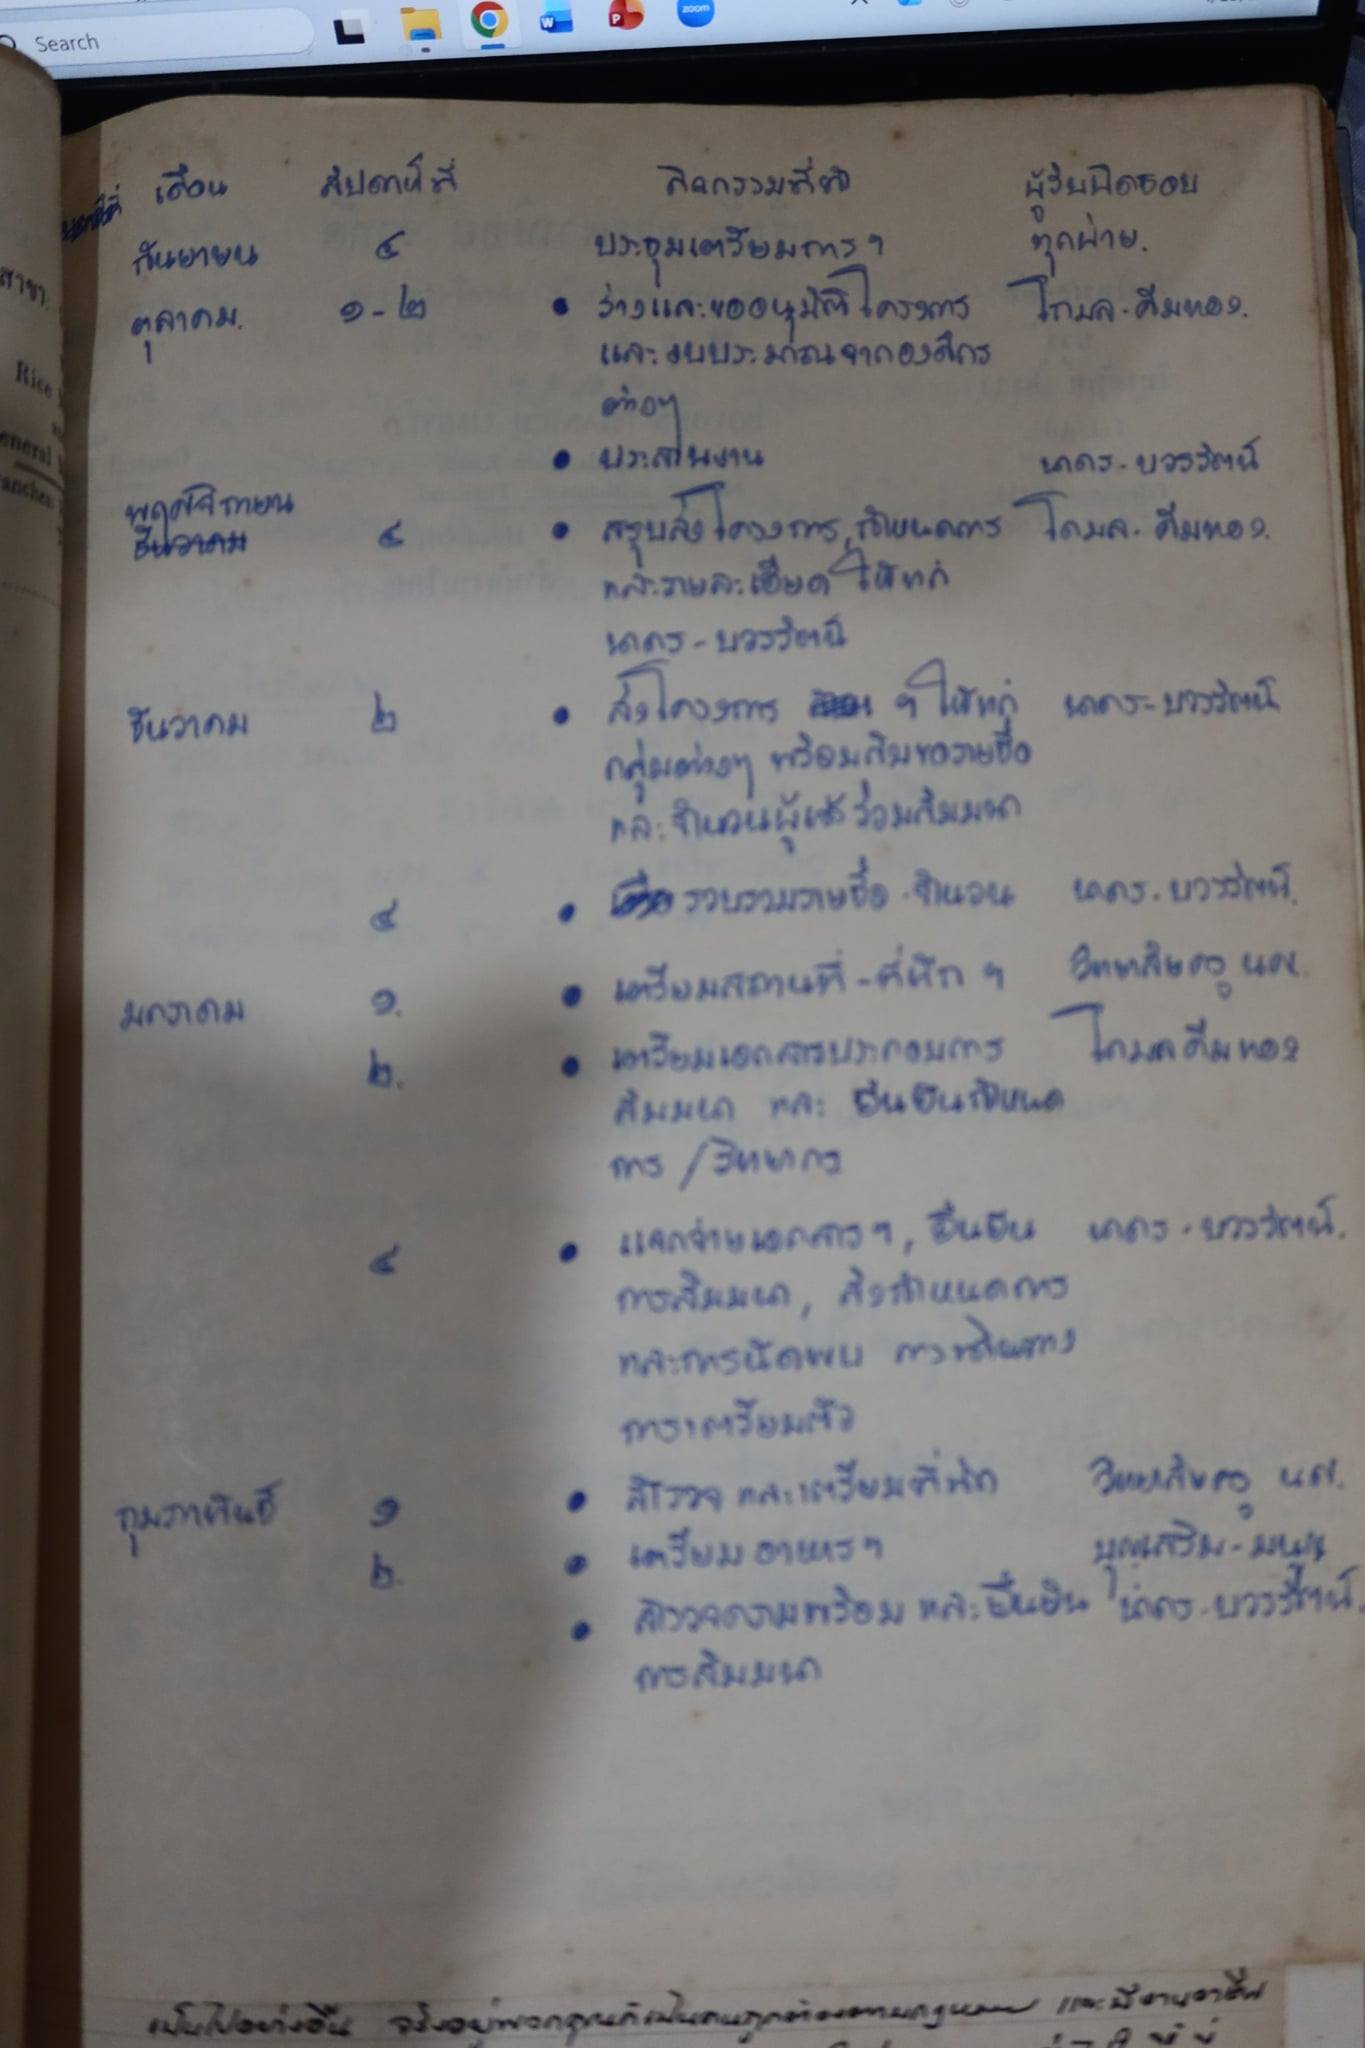 Search
zoom
สาขา:
Rice
eneral
anches
เดือน สัปดาห์ที่ กิจกรรมที่ทำ ผู้รับผิดชอบ
กันยายน ๔ ประชุมเตรียมการฯ ทุกฝ่าย.
ตุลาคม. ๑-๒ • ร่างและขออนุมัติโครงการ โกมล-คีมทอง.
และงบประมาณจากองค์กร
ต่างๆ
• ประสานงาน นคร-บวรรัตน์
พฤศจิกายน
ธันวาคม ๔ • สรุปส่งโครงการ, กำหนดการ โกมล-คีมทอง.
และรายละเอียด ให้แก่
นคร-บวรรัตน์
ธันวาคม ๒ • ส่งโครงการ ฯ ให้แก่ นคร-บวรรัตน์
กลุ่มต่างๆ พร้อมกับขอรายชื่อ
และจำนวนผู้เข้าร่วมสัมมนา
๔ • รวบรวมรายชื่อ-จำนวน นคร-บวรรัตน์.
มกราคม ๑. • เตรียมสถานที่-ที่พัก ฯ วิทยาลัยครู นศ.
๒. • เตรียมเอกสารประกอบการ โกมลคีมทอง
สัมมนา และ ยืนยันกำหนด
การ / วิทยากร
๔ • แจกจ่ายเอกสาร ฯ, ยืนยัน นคร-บวรรัตน์.
การสัมมนา, ส่งกำหนดการ
และการนัดพบ การเดินทาง
การเตรียมตัว
กุมภาพันธ์ ๑ • สำรวจ และเตรียมที่พัก วิทยาลัยครู นศ.
๒. • เตรียมอาหาร ฯ บุญเสริม-
• สำรวจความพร้อม และยืนยัน นคร-บวรรัตน์.
การสัมมนา
เป็นไปอย่างอื่น และมีงานอาชีพ